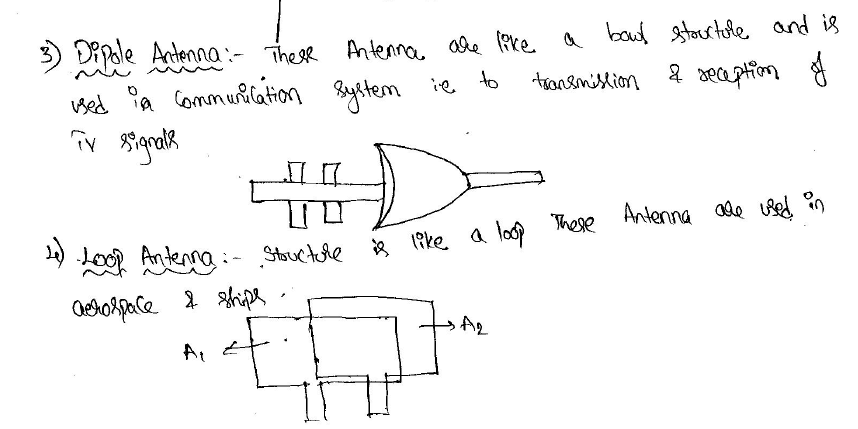 3) Dipole Antenna:- These Antenna are like a bowl structure and is
used in Communication system i.e to transmission & reception of
TV signals
4) Loop Antenna:- structure is like a loop These Antenna are used in
aerospace & ships.
A1
A2